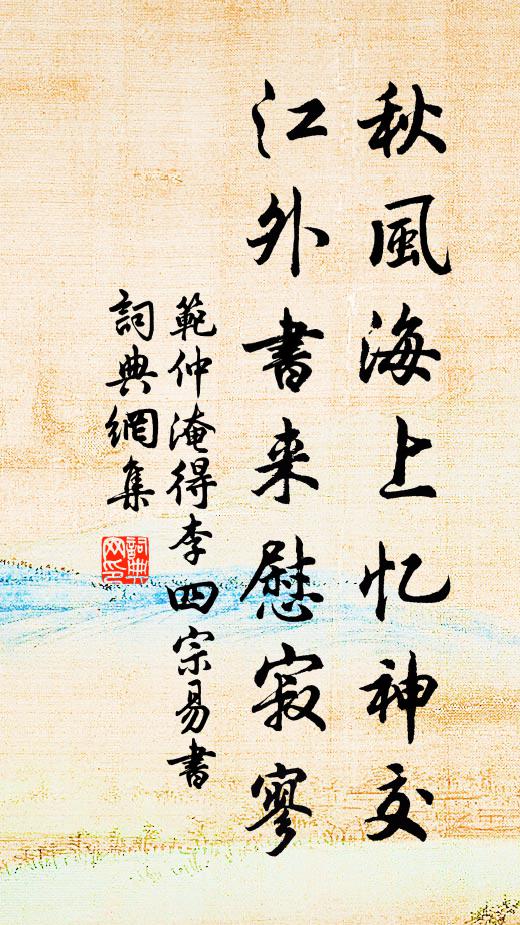 秋風海上忆神交
江外書来慰寂寥
範仲淹得李四宗易書
詞典網集
詞典网印